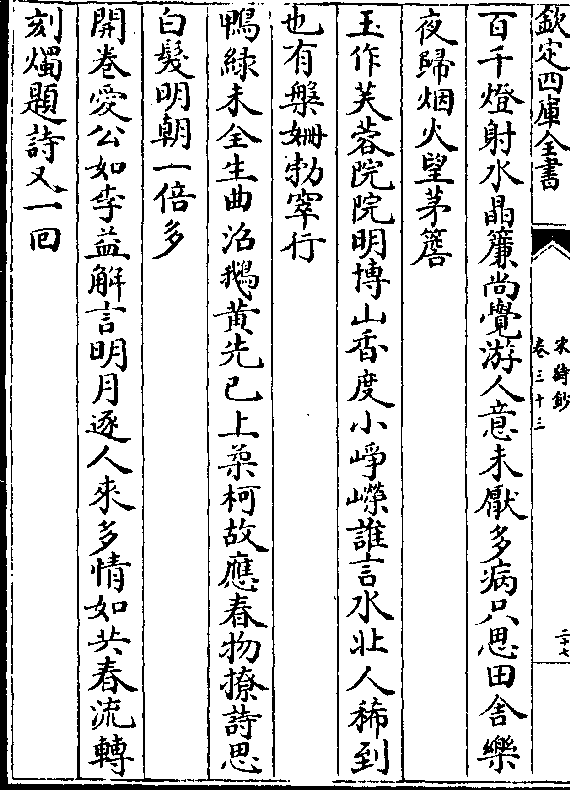 欽定四庫全書
宋詩鈔
卷三十三
二十七
百千燈射水晶簾尚覺游人意未厭多病只思田舎樂
夜歸烟火望茅簷
玉作芙蓉院院明博山香度小崢嶸誰言水北人稀到
也有槃姍勃窣行
鴨綠未全生曲沼鵝黄先已上柔柯故應春物撩詩思
白髮明朝一倍多
開巻愛公如李益解言明月逐人來多情如共春流轉
刻燭題詩又一回